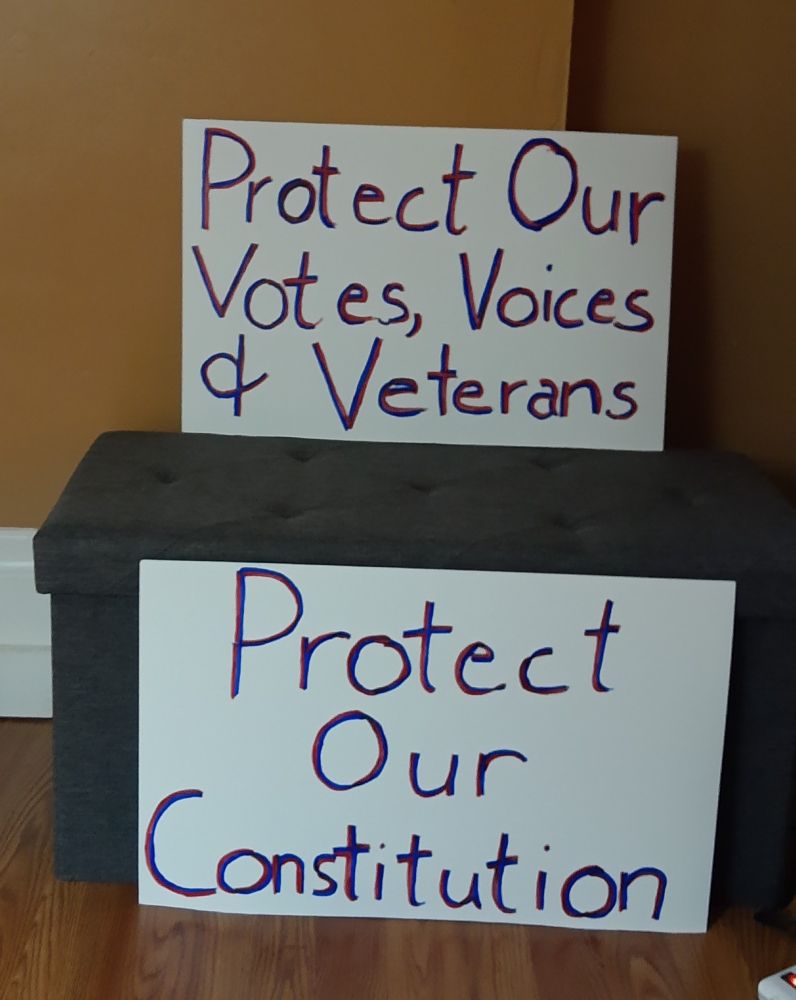 Protect Our
Votes, Voices
& Veterans
Protect
Our
Constitution